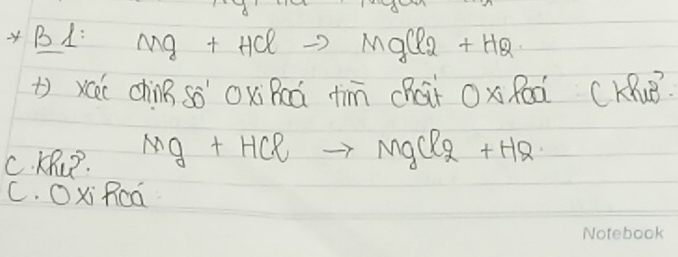 * B1: Mg + HCl → MgCl2 + H2.
+) xác định số oxi hoá tìm chất oxi hoá C khử?
Mg + HCl → MgCl2 + H2.
C. Khử.
C. Oxi hoá
Notebook